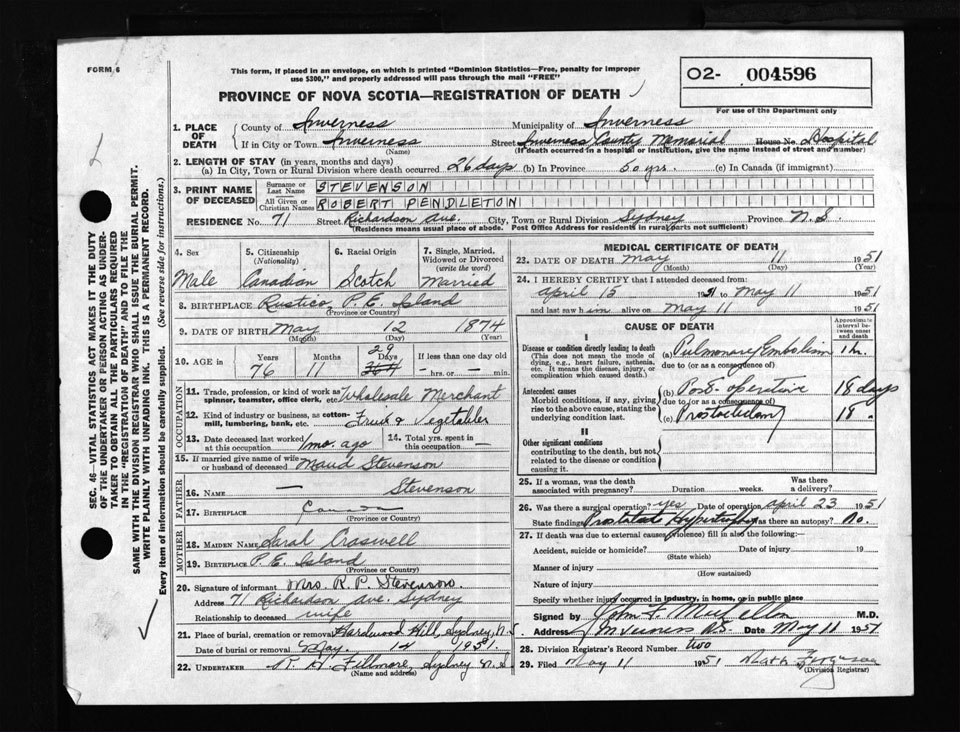 FORM 6
This form, if placed in an envelope, on which is printed "Dominion Statistics—Free, penalty for improper
use $300," and properly addressed will pass through the mail "FREE"
O2- 004596
For use of the Department only
PROVINCE OF NOVA SCOTIA—REGISTRATION OF DEATH
1. PLACE OF DEATH
County of Inverness Municipality of Inverness
If in City or Town Inverness (Name) Street Inverness County Memorial House No. Hospital
(If death occurred in a hospital or institution, give the name instead of street and number)
2. LENGTH OF STAY (in years, months and days)
(a) In City, Town or Rural Division where death occurred 26 days (b) In Province 50 yrs. (c) In Canada (if immigrant)
3. PRINT NAME OF DECEASED
Surname or Last Name STEVENSON
All Given or Christian Names ROBERT PENDLETON
RESIDENCE No. 71 Street Richardson Ave. City, Town or Rural Division Sydney Province N.S.
(Residence means usual place of abode. Post Office Address for residents in rural parts not sufficient)
4. Sex Male
5. Citizenship (Nationality) Canadian
6. Racial Origin Scotch
7. Single, Married, Widowed or Divorced (write the word) Married
8. BIRTHPLACE Rustico P. E. Island
(Province or Country)
9. DATE OF BIRTH May 12 1874
(Month) (Day) (Year)
10. AGE in Years 76 Months 11 Days 29 If less than one day old — hrs. or — min.
OCCUPATION
11. Trade, profession, or kind of work as spinner, teamster, office clerk, etc. Wholesale Merchant
12. Kind of industry or business, as cotton-mill, lumbering, bank, etc. Fruit & Vegetables
13. Date deceased last worked at this occupation 1 mo. ago 14. Total yrs. spent in this occupation —
15. If married give name of wife or husband of deceased Maud Stevenson
FATHER
16. NAME — Stevenson
17. BIRTHPLACE
(Province or Country)
MOTHER
18. MAIDEN NAME Sarah Craswell
19. BIRTHPLACE P. E. Island
(Province or Country)
20. Signature of informant Mrs. R. P. Stevenson.
Address 71 Richardson Ave. Sydney
Relationship to deceased wife
21. Place of burial, cremation or removal Hardwood Hill, Sydney, N.S.
Date of burial or removal May. 14 1951.
22. UNDERTAKER R. H. Fillmore, Sydney N.S.
(Name and address)
MEDICAL CERTIFICATE OF DEATH
23. DATE OF DEATH May 11 1951
(Month) (Day) (Year)
24. I HEREBY CERTIFY that I attended deceased from:
April 15 1951 to May 11 1951
and last saw him alive on May 11 1951
CAUSE OF DEATH
Approximate interval between onset and death
I
Disease or condition directly leading to death
(This does not mean the mode of dying, e.g., heart failure, asthenia, etc. It means the disease, injury, or complication which caused death.)
(a) Pulmonary Embolism 1 h.
due to (or as a consequence of)
Antecedent causes
Morbid conditions, if any, giving rise to the above cause, stating the underlying condition last.
(b) Post-operative 18 days
due to (or as a consequence of)
(c) Prostatectomy 18 "
II
Other significant conditions
contributing to the death, but not related to the disease or condition causing it.
25. If a woman, was the death associated with pregnancy? Duration weeks. Was there a delivery?
26. Was there a surgical operation? yes Date of operation April 23 1951
State finding Prostatic Hypertrophy Was there an autopsy? No.
27. If death was due to external causes (violence) fill in also the following:—
Accident, suicide or homicide? Date of injury 19
(State which)
Manner of injury
(How sustained)
Nature of injury
Specify whether injury occurred in industry, in home, or in public place
Signed by John F. M.D.
Address Inverness N.S. Date May 11 1951
28. Division Registrar's Record Number
29. Filed May 11 1951 Ferguson
(Division Registrar)
SEC. 46—VITAL STATISTICS ACT MAKES IT THE DUTY
OF THE UNDERTAKER OR PERSON ACTING AS UNDER-
TAKER TO OBTAIN ALL THE PARTICULARS REQUIRED
IN THE "REGISTRATION OF DEATH" AND TO FILE THE
SAME WITH THE DIVISION REGISTRAR WHO SHALL ISSUE THE BURIAL PERMIT.
WRITE PLAINLY WITH UNFADING INK. THIS IS A PERMANENT RECORD.
Every item of information should be carefully supplied. (See reverse side for instructions.)